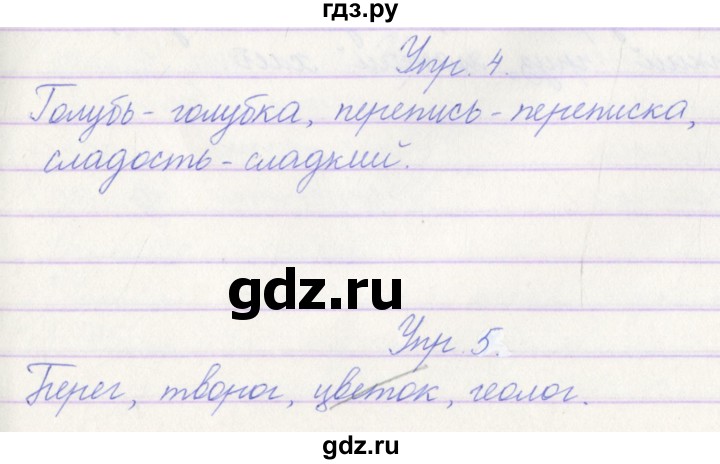 гдз.ру
Упр. 4.
Голубь - голубка, перепись - переписка,
сладость - сладкий.
gdz.ru
Упр. 5.
Берег, творог, цветок, геолог.
gdz.ru